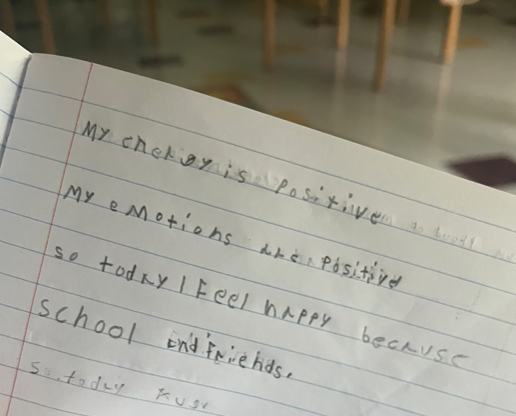 My energy is positive
My emotions are positive
so today I Feel happy because
school end friends.
so today